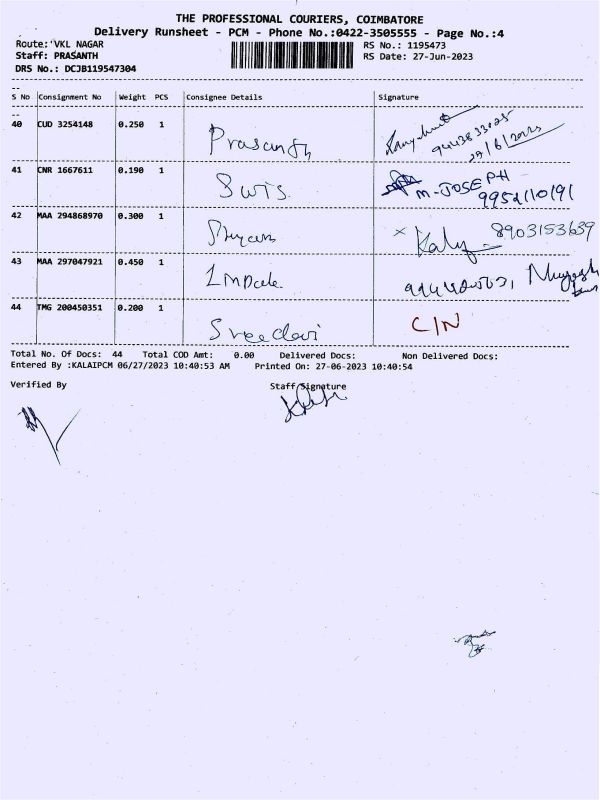 THE PROFESSIONAL COURIERS, COIMBATORE
Delivery Runsheet - PCM - Phone No.:0422-3505555 - Page No.:4
Route: VKL NAGAR
RS No.: 1195473
Staff: PRASANTH
RS Date: 27-Jun-2023
DRS No.: DCJB119547304
S No Consignment No Weight PCS Consignee Details Signature
40 CUD 3254148 0.250 1 Prasanth
27/6/2023
41 CNR 1667611 0.190 1 Swis M-JOSEPH
9952110191
42 MAA 294868970 0.300 1 8903153639
43 MAA 297047921 0.450 1
44 TMG 200450351 0.200 1 Sreedevi C/N
Total No. Of Docs: 44 Total COD Amt: 0.00 Delivered Docs: Non Delivered Docs:
Entered By :KALAIPCM 06/27/2023 10:40:53 AM Printed On: 27-06-2023 10:40:54
Verified By Staff Signature